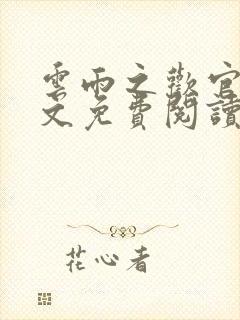 雲雨之歡官
文免費閱讀
花心者